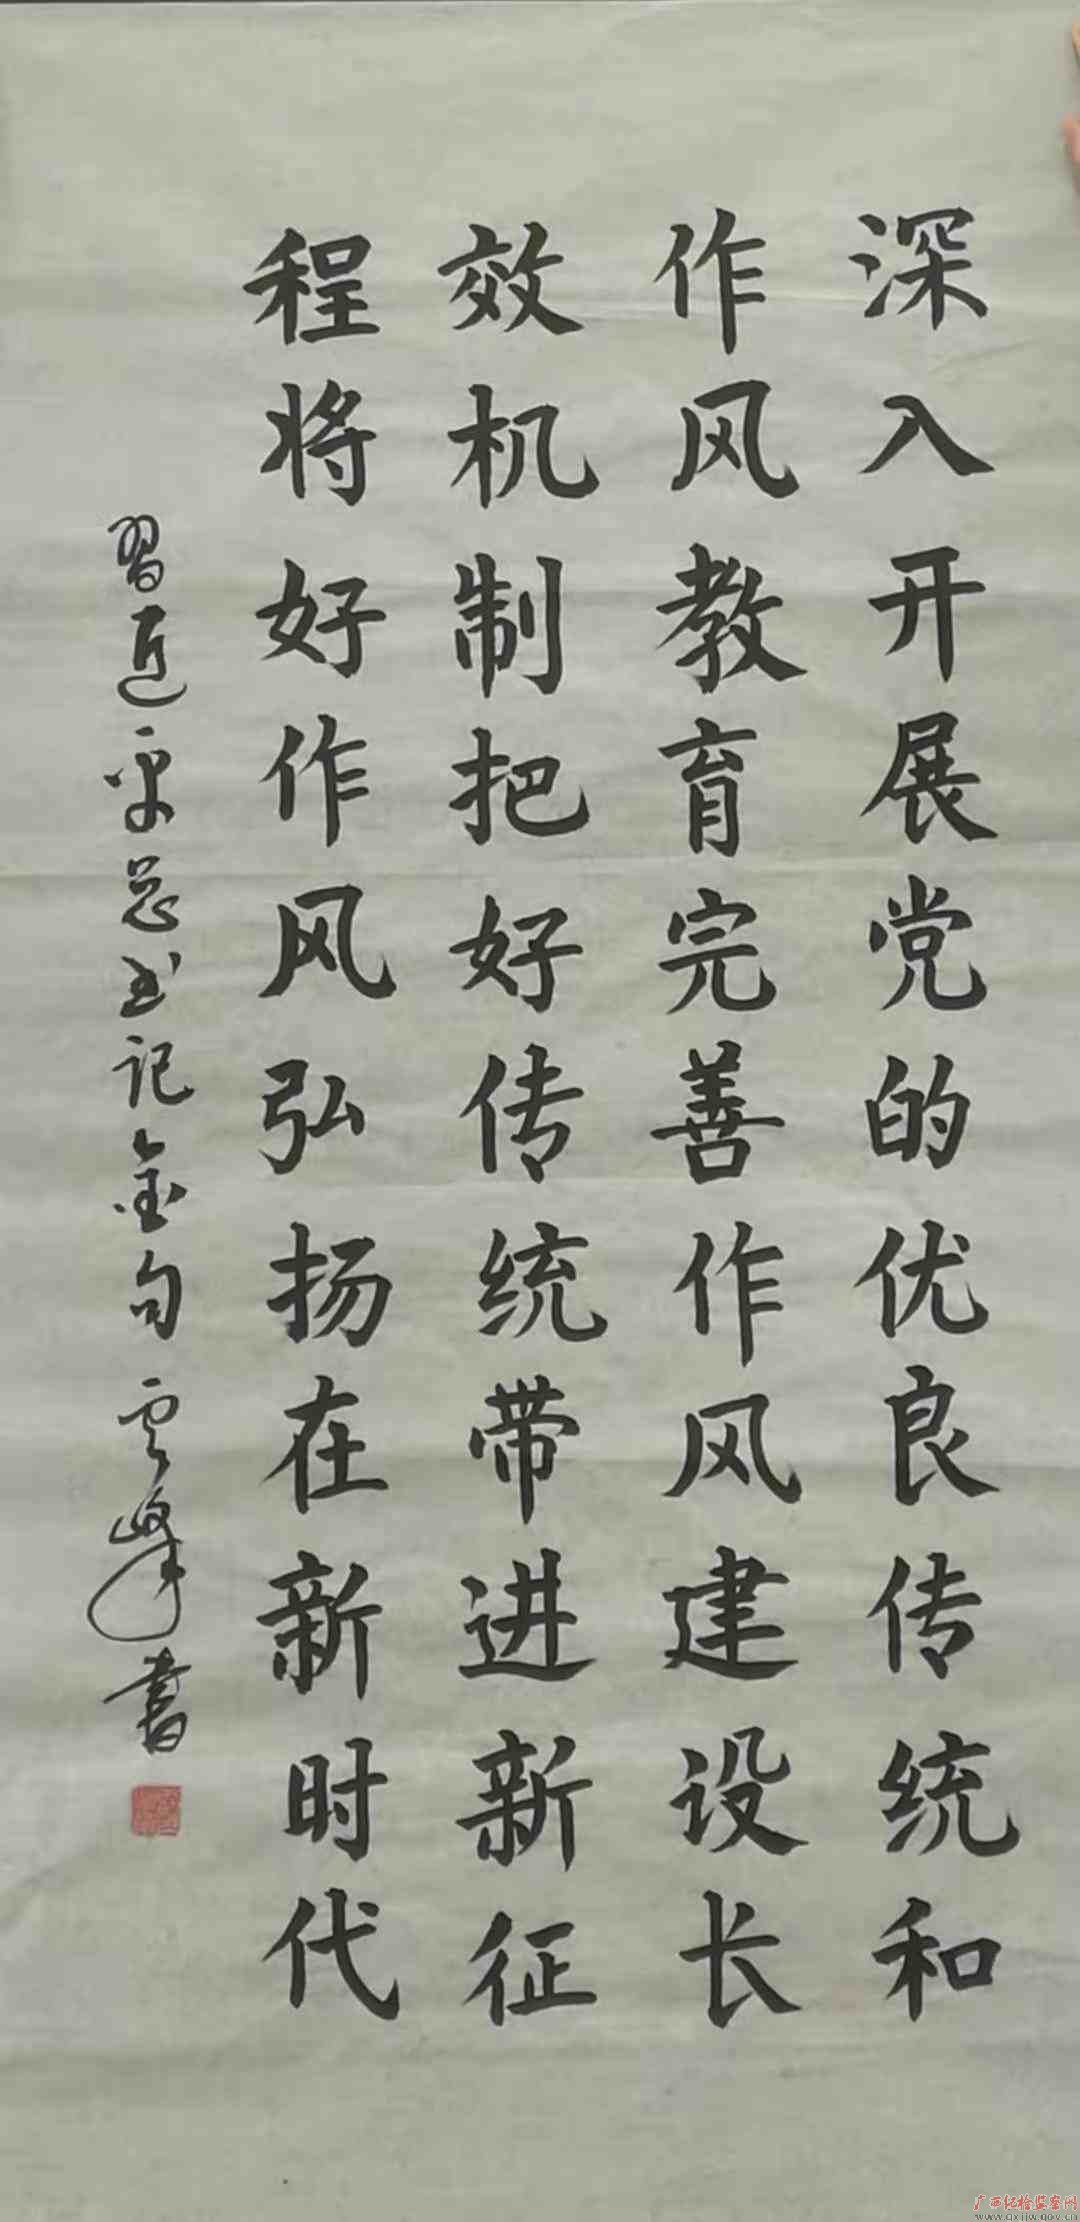 深入开展党的优良传统和
作风教育完善作风建设长
效机制把好传统带进新征
程将好作风弘扬在新时代
習近平总书记金句 云峰書
广西纪检监察网
www.gxjjw.gov.cn